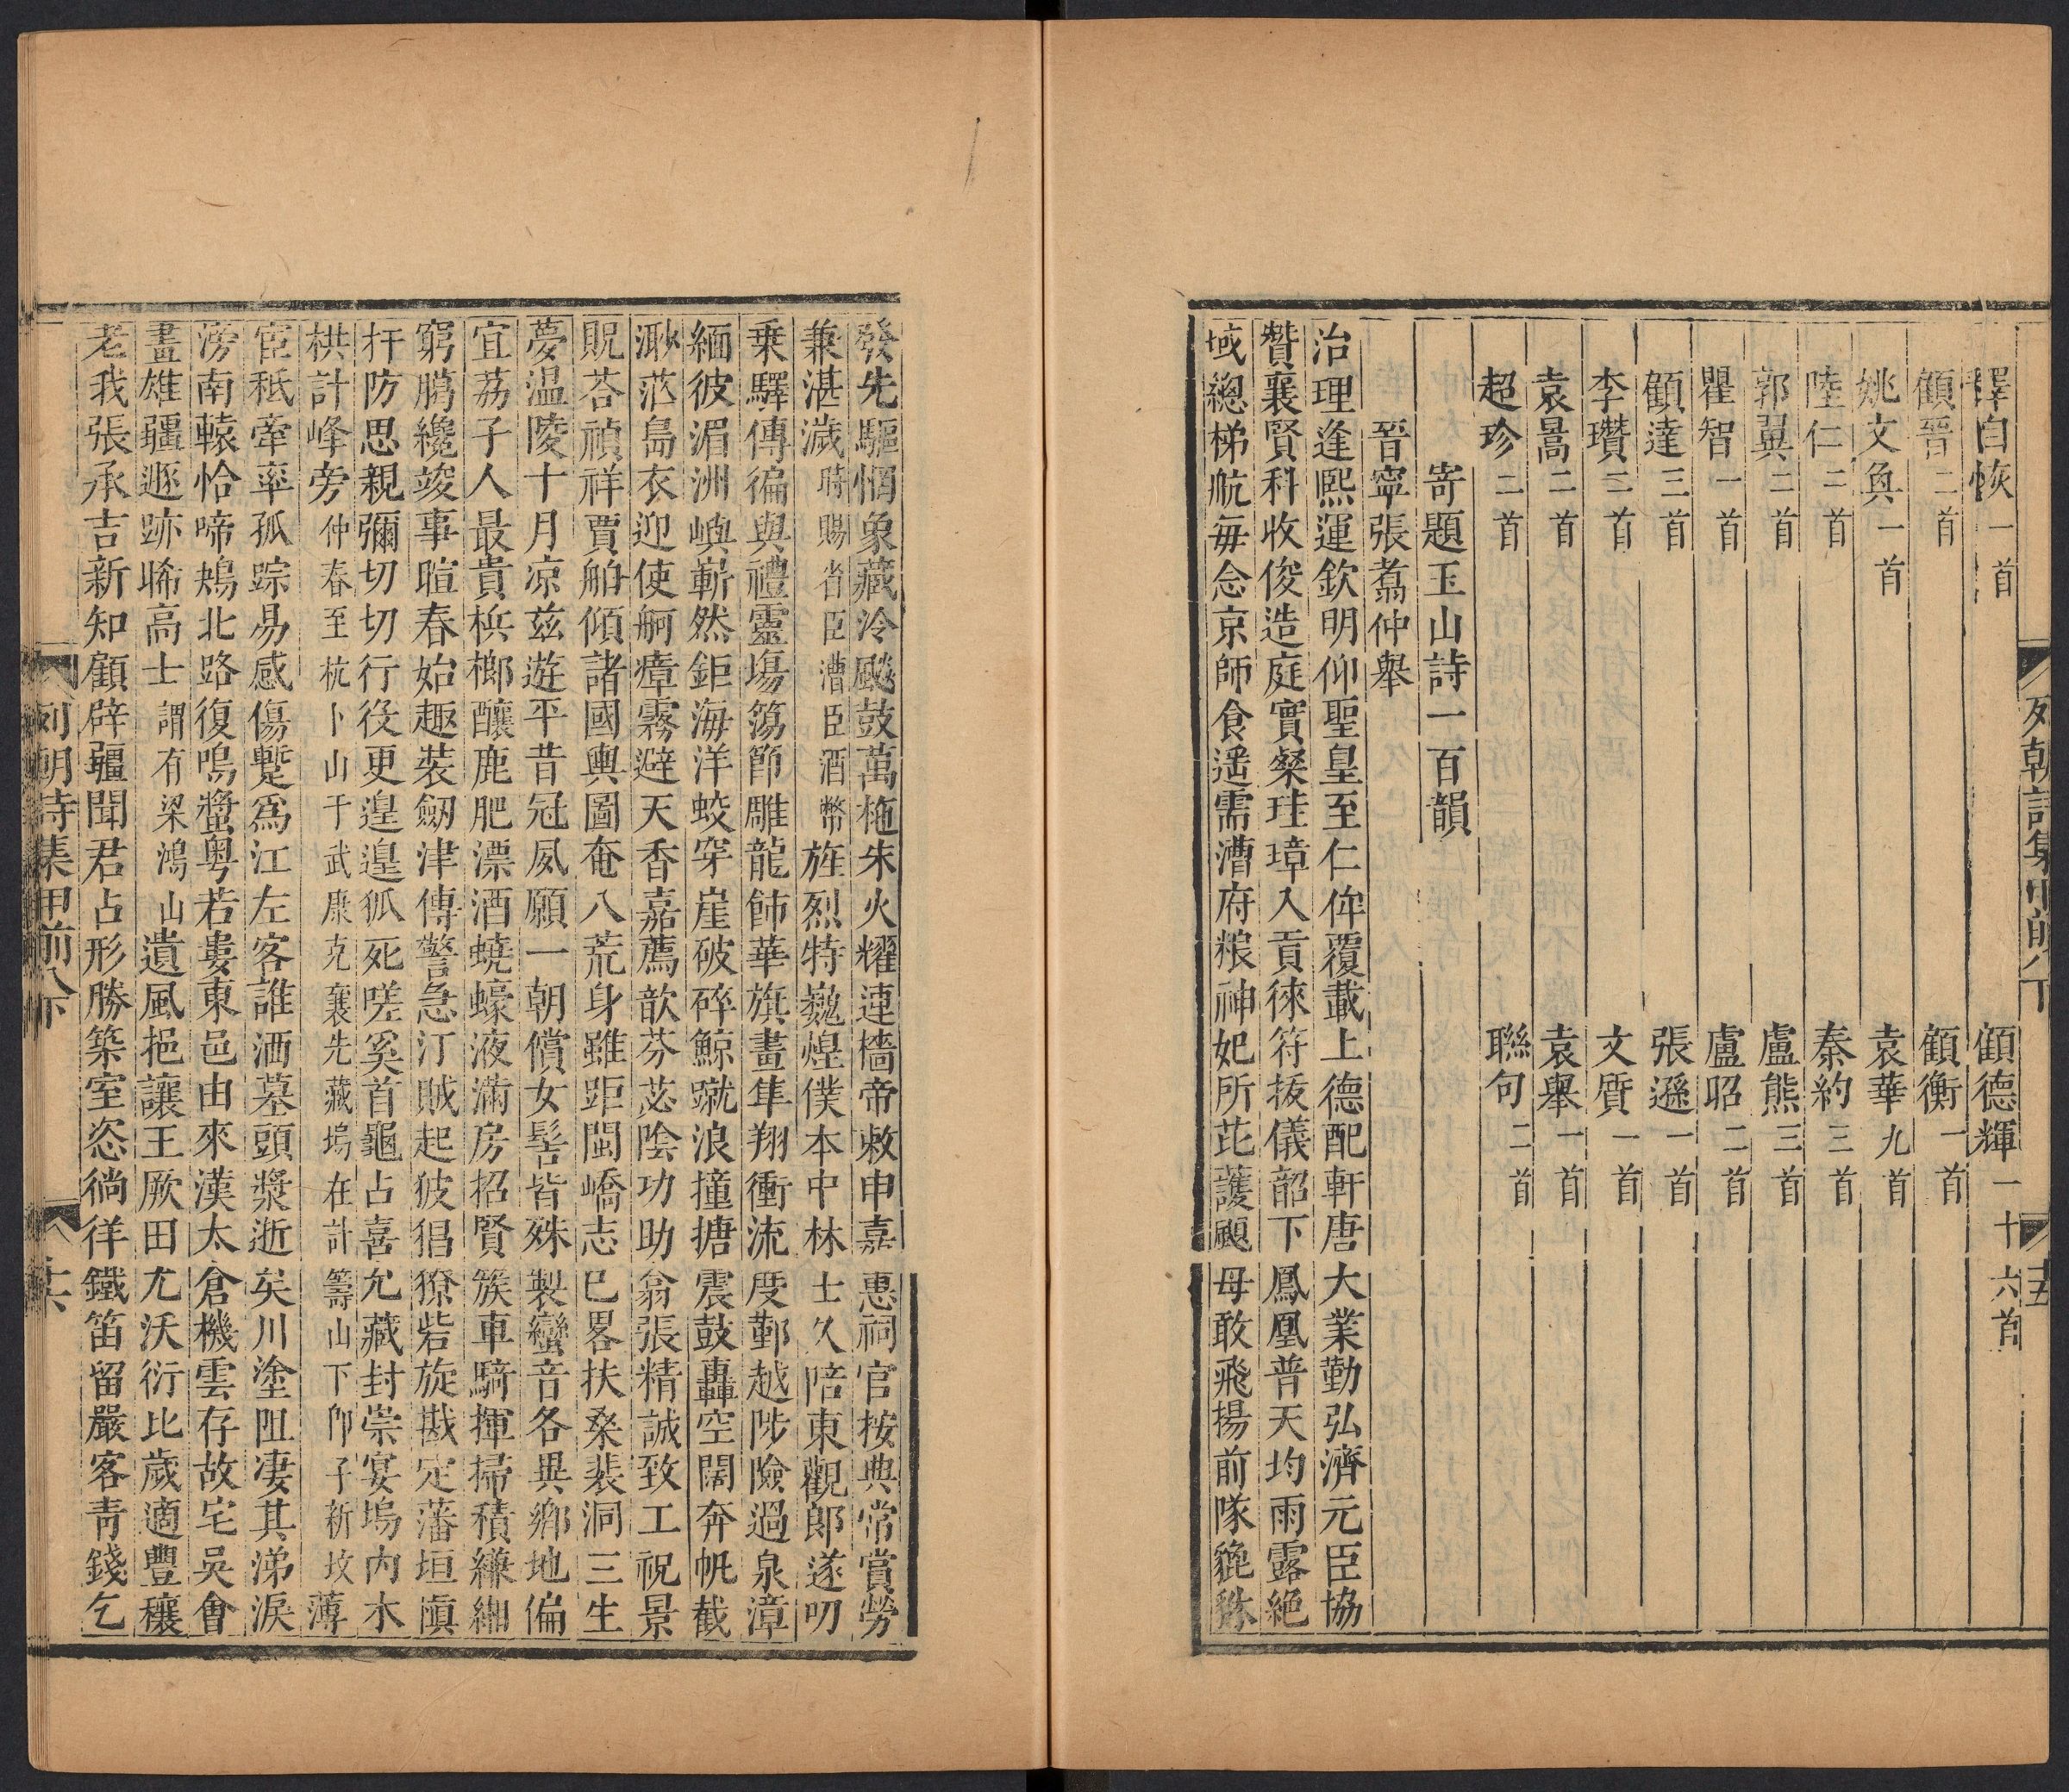 列朝詩集甲前八下 五
釋自恢一首 顧德輝一十六首
顧晉二首 顧衡一首
姚文奐一首 袁華九首
陸仁二首 秦約三首
郭翼二首 盧熊三首
瞿智一首 盧昭二首
顧達三首 張遜一首
李瓚三首 文質一首
袁暠二首 袁舉一首
超珍二首 聯句二首
寄題玉山詩一百韻
晉寧張翥仲舉
治理逢熙運欽明仰聖皇至仁侔覆載上德配軒唐大業勤弘濟元臣協
贊襄賢科收俊造庭實粲珪璋入貢徠符拔儀韶下鳳凰普天均雨露絕
域總梯航每念京師食遥需漕府粮神妃所芘護颶母敢飛揚前隊毸毸
發先驅惘象藏泠飈鼓萬柂朱火耀連檣帝敕申嘉惠祠官按典常賞勞
兼湛濊時賜省臣漕臣酒幣旌烈特巍煌僕本中林士久陪東觀郎遂叨
乘驛傳徧與禮靈塲簜節雕龍飾華旗畫隼翔衝流度鄞越陟險過泉漳
緬彼湄洲嶼嶄然鉅海洋蛟穿崖破碎鯨蹴浪撞搪震鼓轟空闊奔帆截
溵茫島衣迎使舸瘴霧避天香嘉薦歆芬苾陰功助翕張精誠致工祝景
貺荅禎祥賈舶傾諸國輿圖奄八荒身雖距閩嶠志已畧扶桑裴洞三生
夢温陵十月凉茲遊平昔冠夙願一朝償女髻皆殊製蠻音各異鄉地偏
宜荔子人最貴梹榔釀鹿肥漂酒蟯蠔液滿房招賢簇車騎揮掃積縑緗
窮臈纔竣事暄春始趣裝劒津傳警急汀賊起狓猖獠砦旋戡定藩垣愼
扞防思親彌切切行役更遑遑狐死嗟奚首龜占喜允藏封崇宴塢內木
栱計峰旁仲春至杭卜山于武康克襄先藏塢在計籌山下卽子新坟薄
宦秪牽率孤踪易感傷蹔爲江左客誰洒墓頭漿逝矣川塗阻凄其涕淚
滂南轅恰啼鴂北路復嗚螿粤若婁東邑由來漢太倉機雲存故宅吳會
畫雄疆遯跡睎高士謂有梁鴻山遺風挹讓王厥田尤沃衍比歲適豐穰
老我張承吉新知顧辟疆聞君占形勝築室恣徜徉鐵笛留嚴客靑錢乞
列朝詩集甲前八下 十六